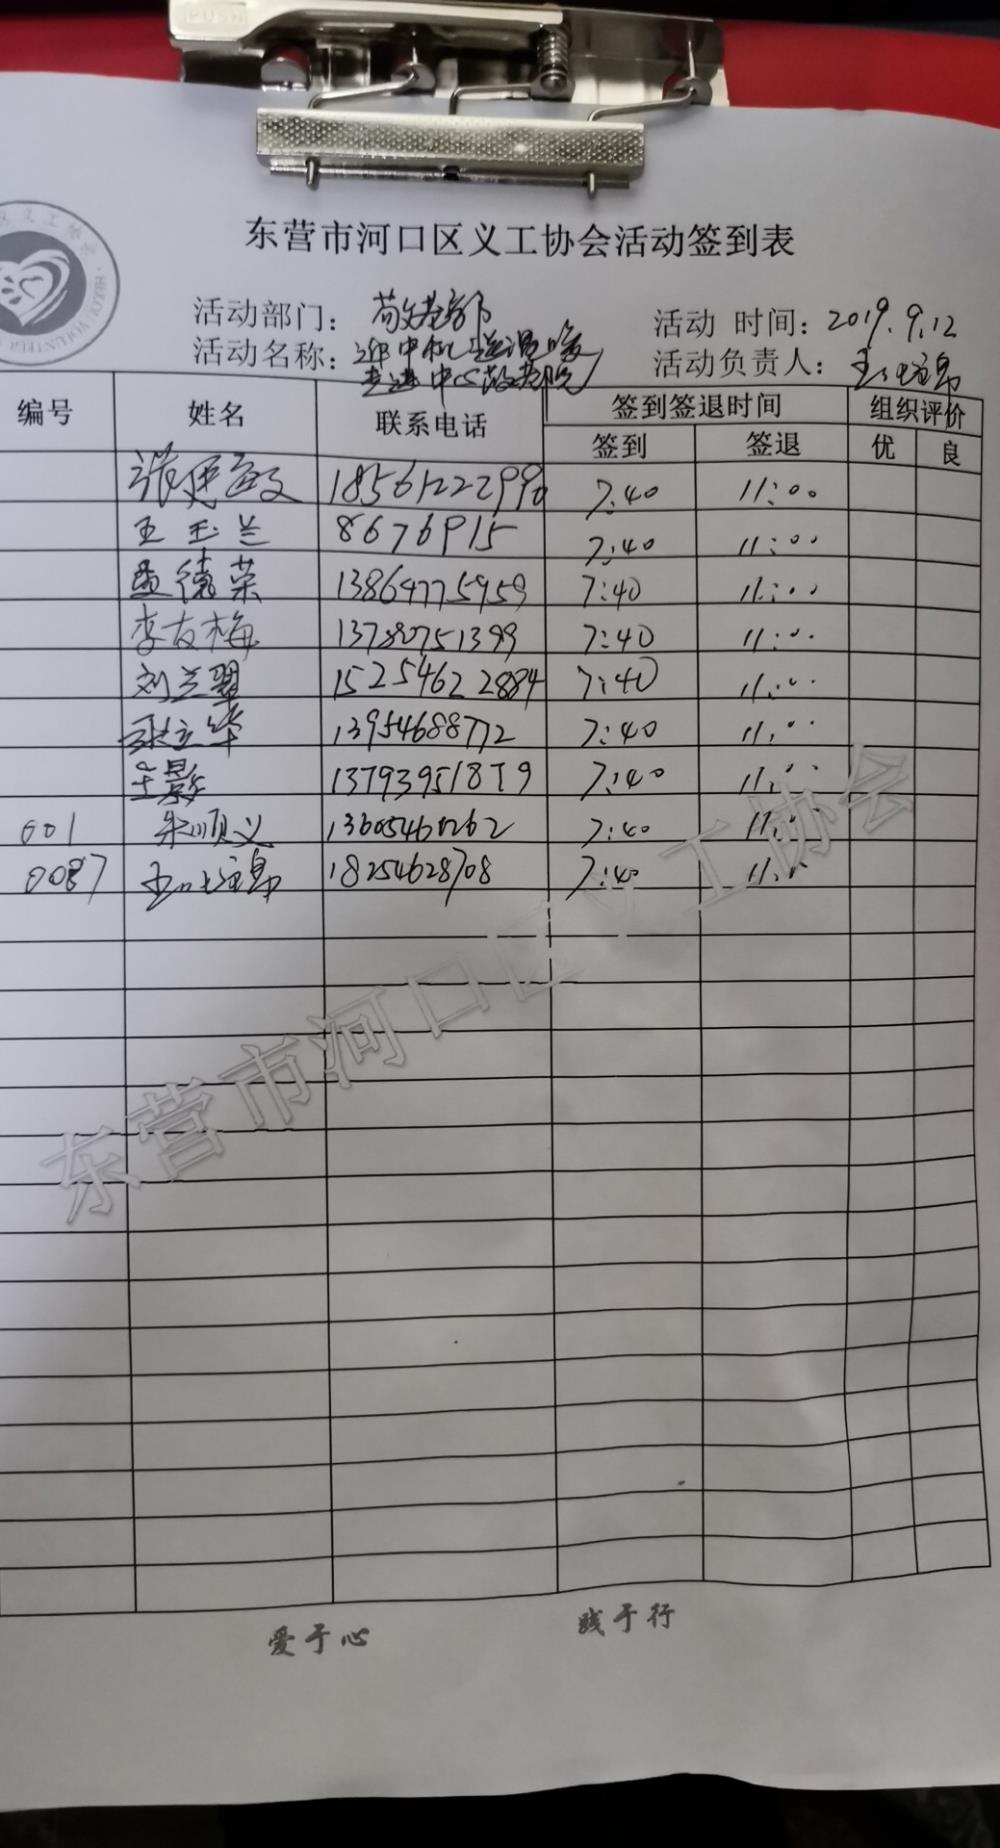 东营市河口区义工协会活动签到表
活动部门：敬老部 活动 时间：2019.9.12
活动名称：迎中秋送温暖 活动负责人：
走进中心敬老院
编号 姓名 联系电话 签到签退时间 组织评价
签到 签退 优 良
7:40 11:00
王玉兰 8676915 7:40 11:00
孟德荣 13864775959 7:40 11:00
李友梅 13780751399 7:40 11:00
刘兰翠 15254622884 7:40 11:00
张立华 13954688772 7:40 11:00
王影 13793951879 7:40 11:00
001 朱顺义 13605460262 7:40 11:00
0087 18254628708 7:40
东营市河口区义工协会
爱于心 践于行